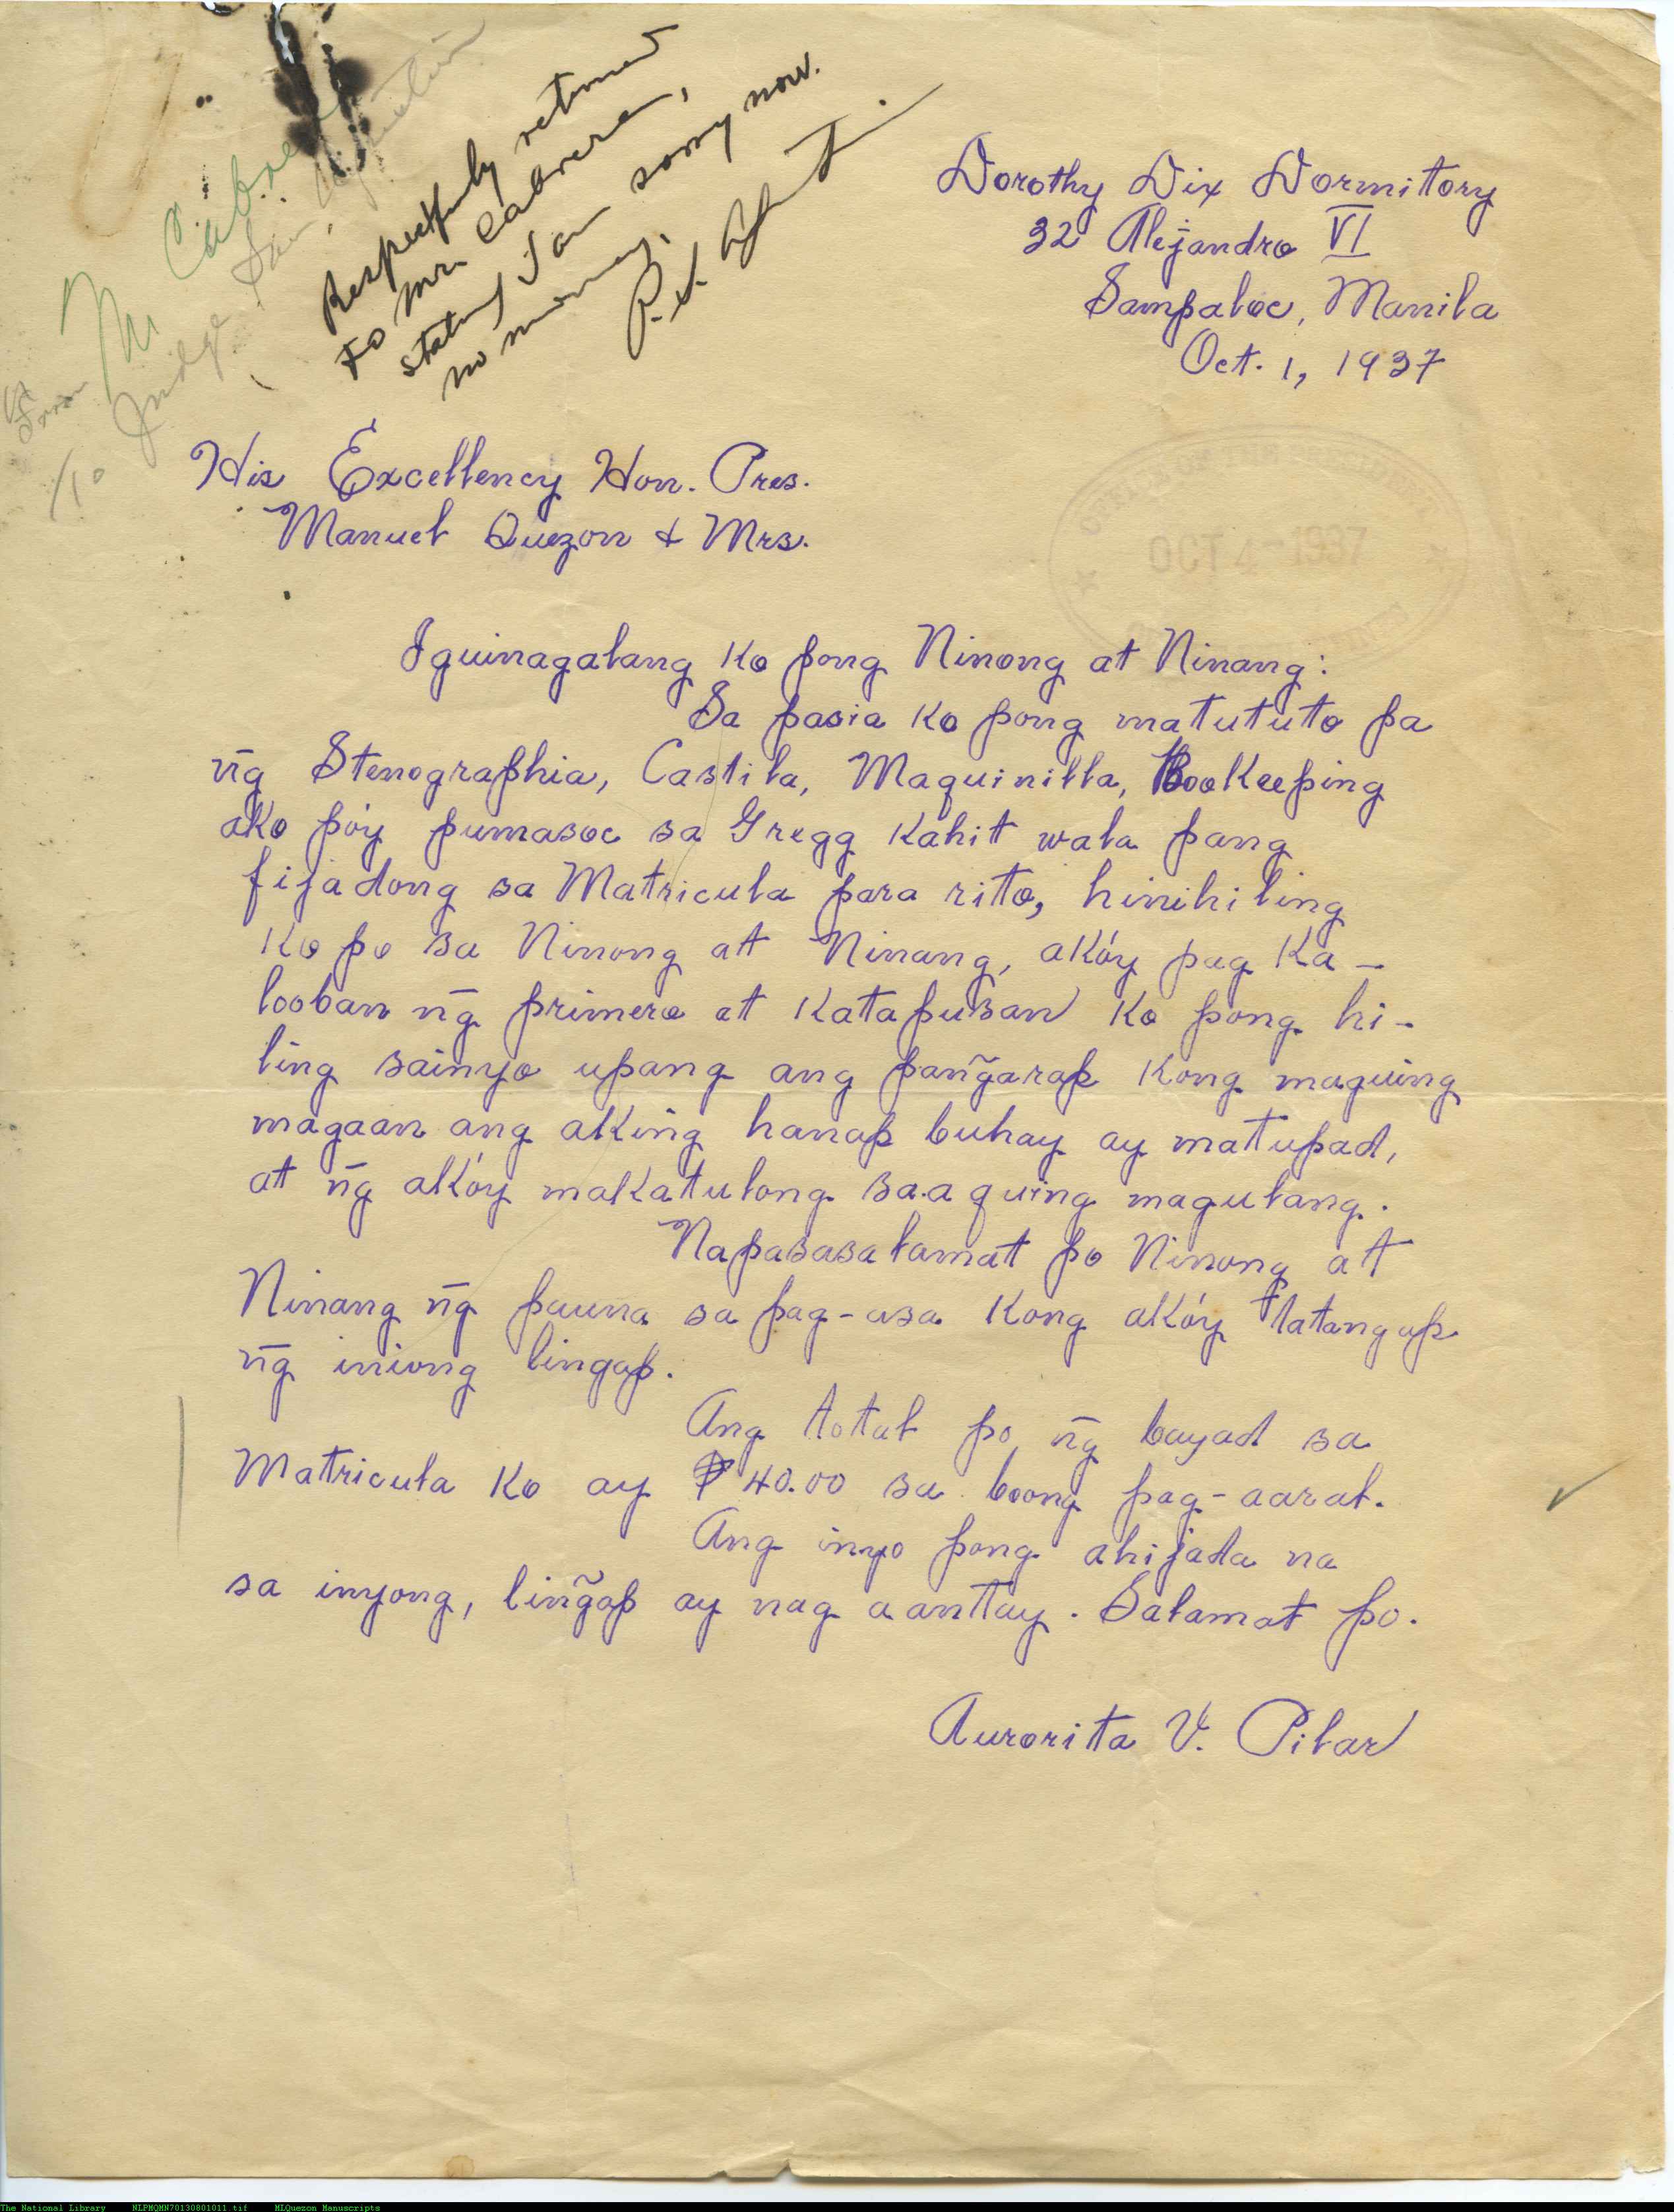 Mr Cabrera
From
To Judge San Agustin
Respectfully returned
to Mr. Cabrera,
stating I am sorry now.
no money.
Dorothy Dix Dormitory
32 Alejandro VI
Sampaloc, Manila
Oct. 1, 1937
OCT 4 - 1937
His Excellency Hon. Pres.
Manuel Quezon & Mrs.
Iguinagalang ko pong Ninong at Ninang:
Sa pasia ko pong matututo pa
n̄g Stenographia, Castila, Maquinilla, Bookeeping
ako pó'y pumasoc sa Gregg kahit wala pang
fijadong sa Matricula para rito, hinihiling
ko po sa Ninong at Ninang, akó'y pag ka-
looban n̄g primero at katapusan ko pong hi-
ling sainyo upang ang pang̃arap kong maguing
magaan ang aking hanap buhay ay matupad,
at n̄g akó'y makatulong sa aquing magulang.
Napasasalamat po Ninong at
Ninang n̄g pauna sa pag-asa kong akó'y tatangap
n̄g iniong lingap.
Ang total po n̄g bayad sa
Matricula ko ay ₱ 40.00 sa boong pag-aaral.
Ang inyo pong ahijada na
sa inyong, ling̃ap ay nag aantay. Salamat po.
Aurorita V. Pilar
The National Library NLPMQMN70130801011.tif MLQuezon Manuscripts